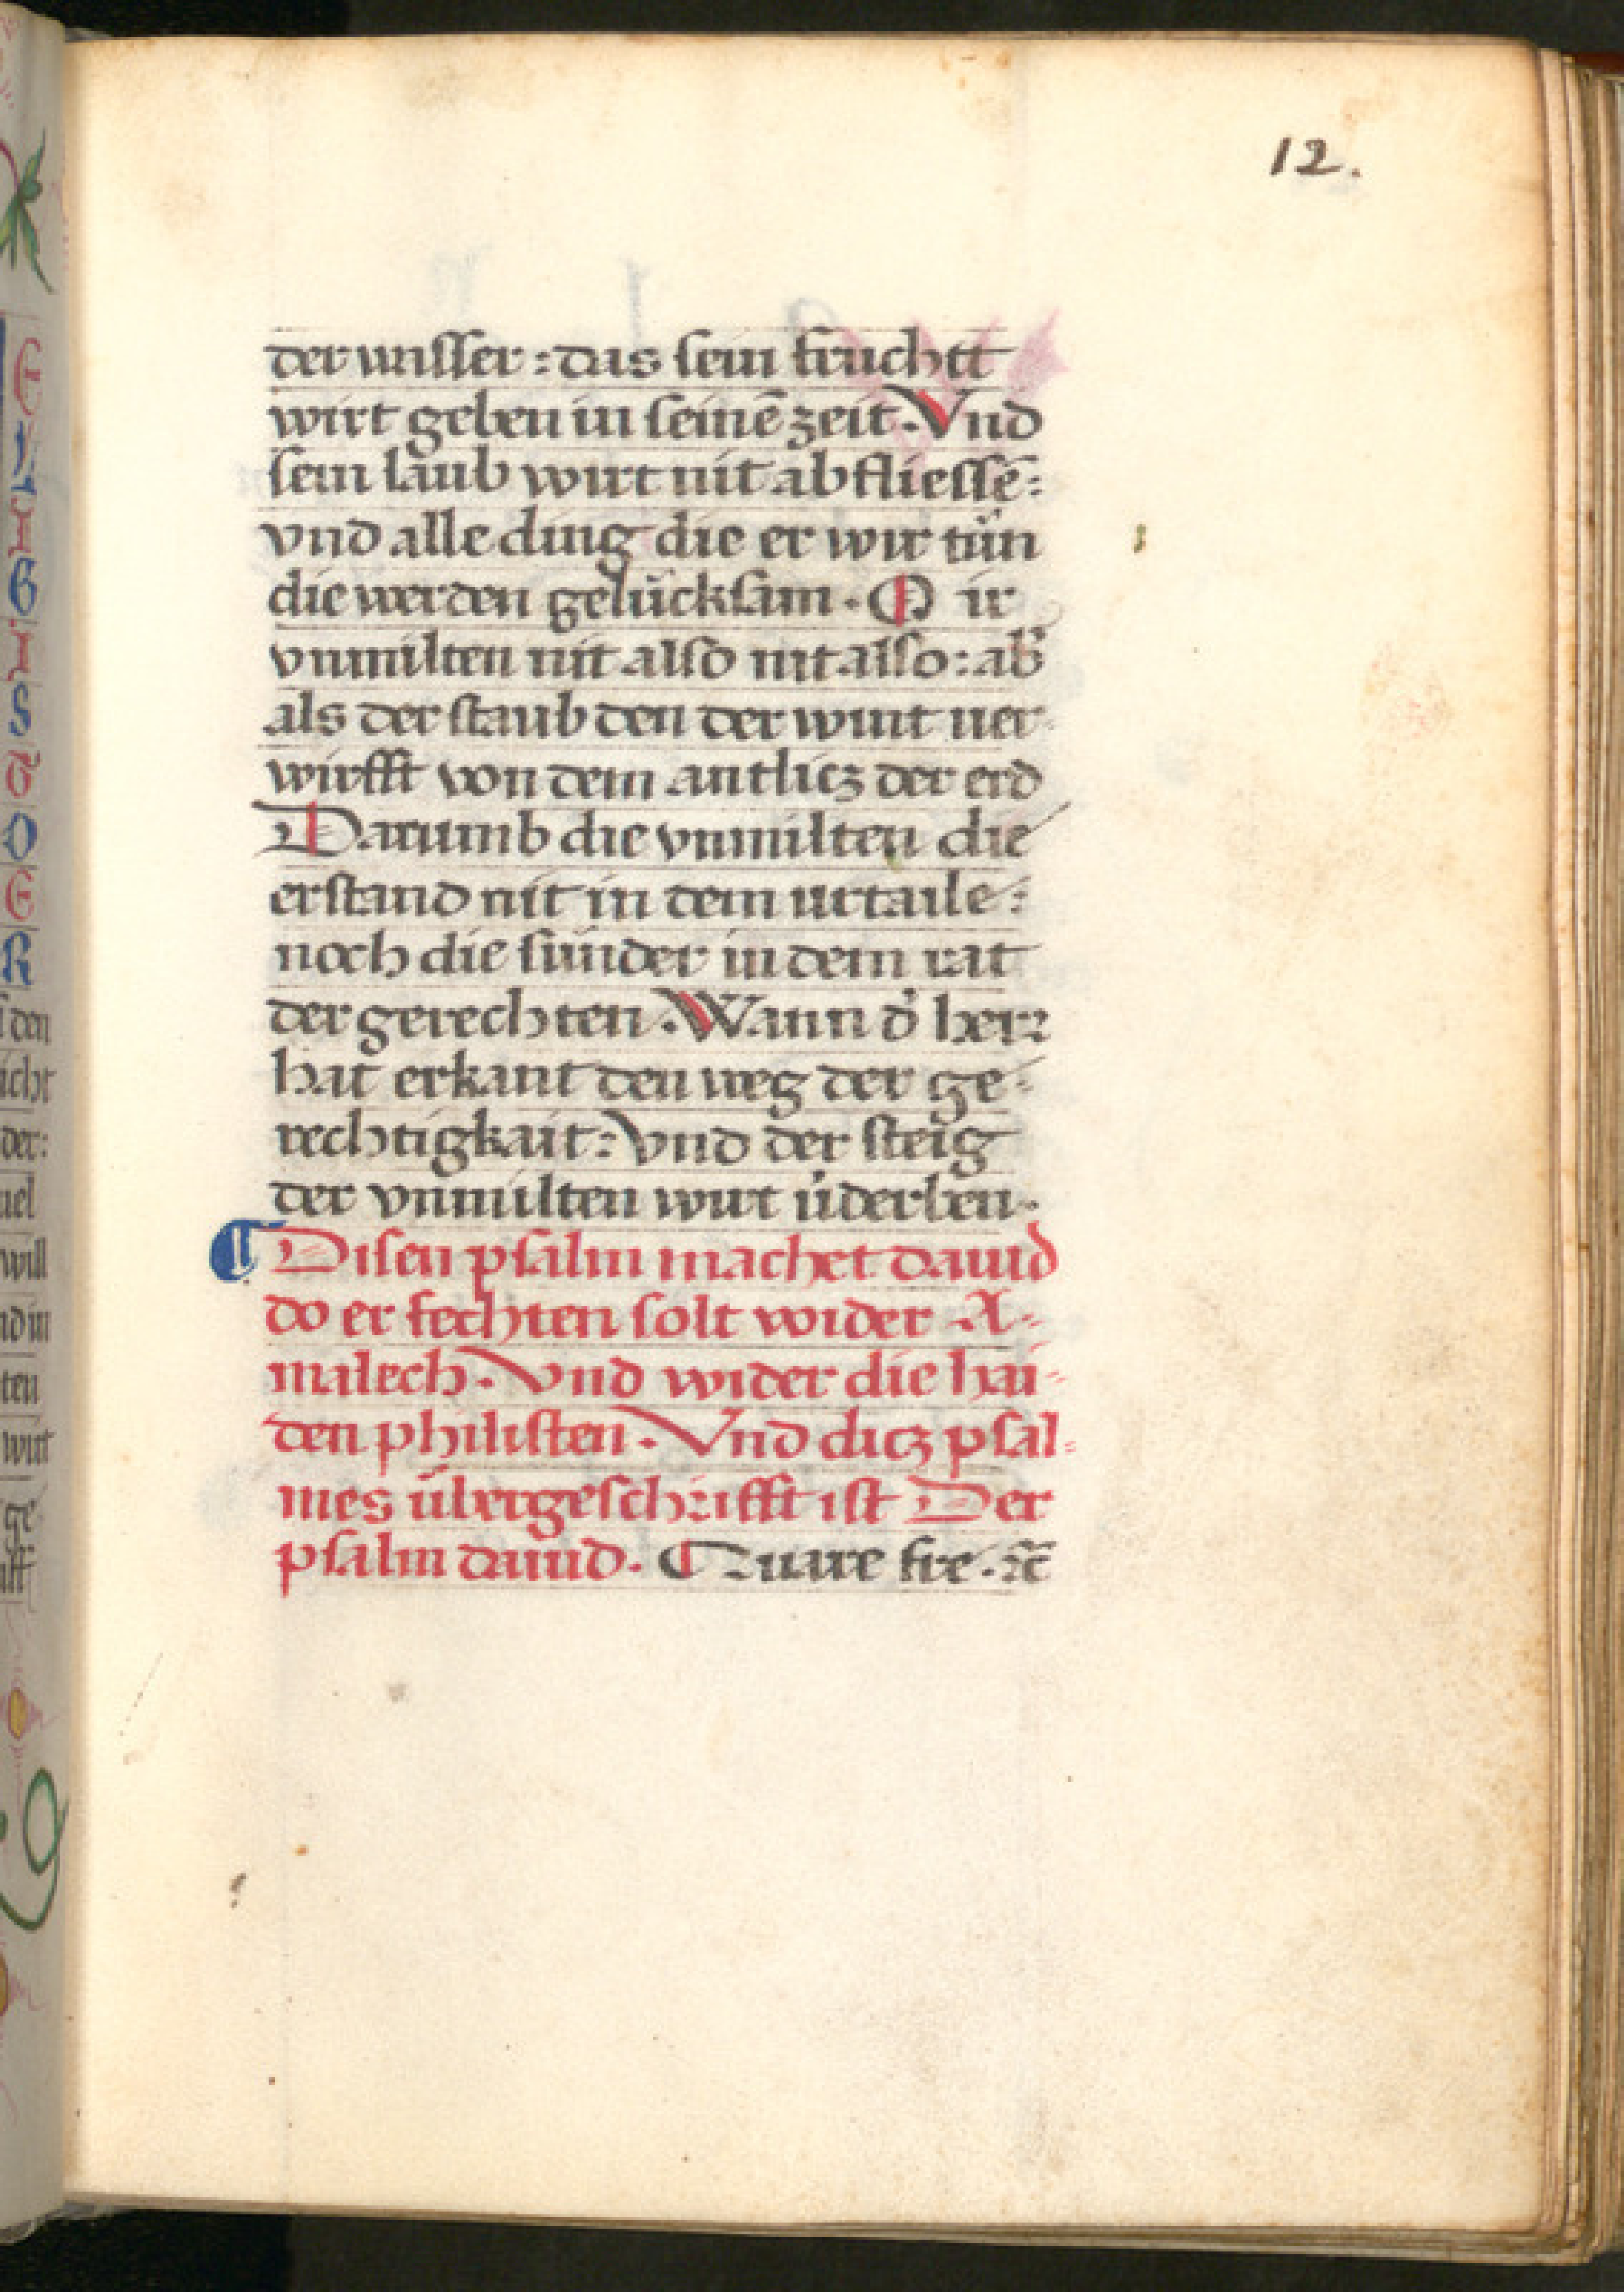 12.
der wasser : das sein fruchtt
wirt geben in seinē zeit. Vnd
sein laub wirt nit abfliessē:
vnd alle ding die er wir tůn
die werden gelücksam. O ir
vnmilten nit also nit also: ab̉
als der staub den der wint uer-
wirfft von dem antlicz der erd
Darumb die vnmilten die
erstand nit in dem urtaile:
noch die sünder in dem rat
der gerechten. Wann d̉ herr
hat erkant den weg der ge-
rechtigkait: vnd der steig
der vnmilten wirt v̉derben.
¶ Disen psalm machet dauid
do er fechten solt wider A-
malech. vnd wider die hai-
den philisten. Vnd dicz psal-
mes übergeschrifft ist Der
psalm dauid. Quare fre. ⁊c̄